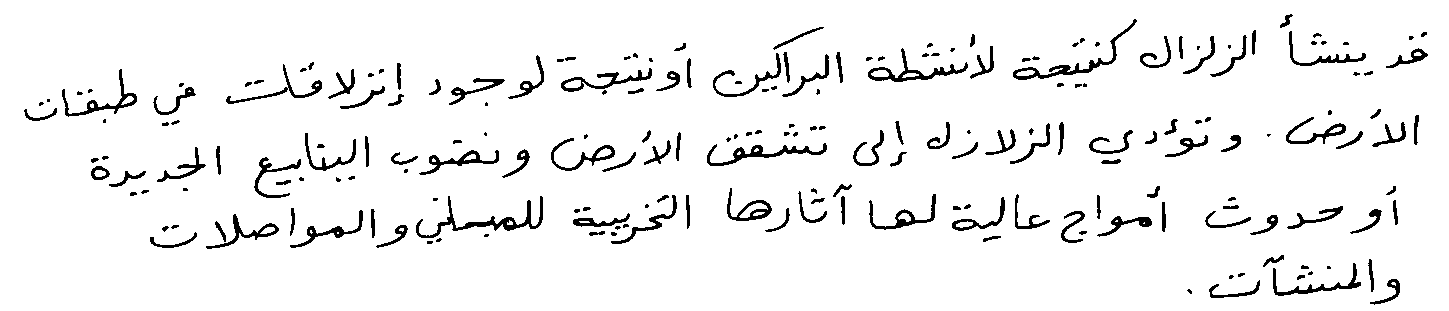 قد ينشأ الزلزال كنتيجة لأنشطة البراكين أو نتيجة لوجود إنزلاقات في طبقات
الأرض. وتؤدي الزلازل إلى تشقق الأرض ونضوب الينابيع الجديدة
أو حدوث أمواج عالية لها آثارها التخريبية للمباني والمواصلات
والمنشآت.